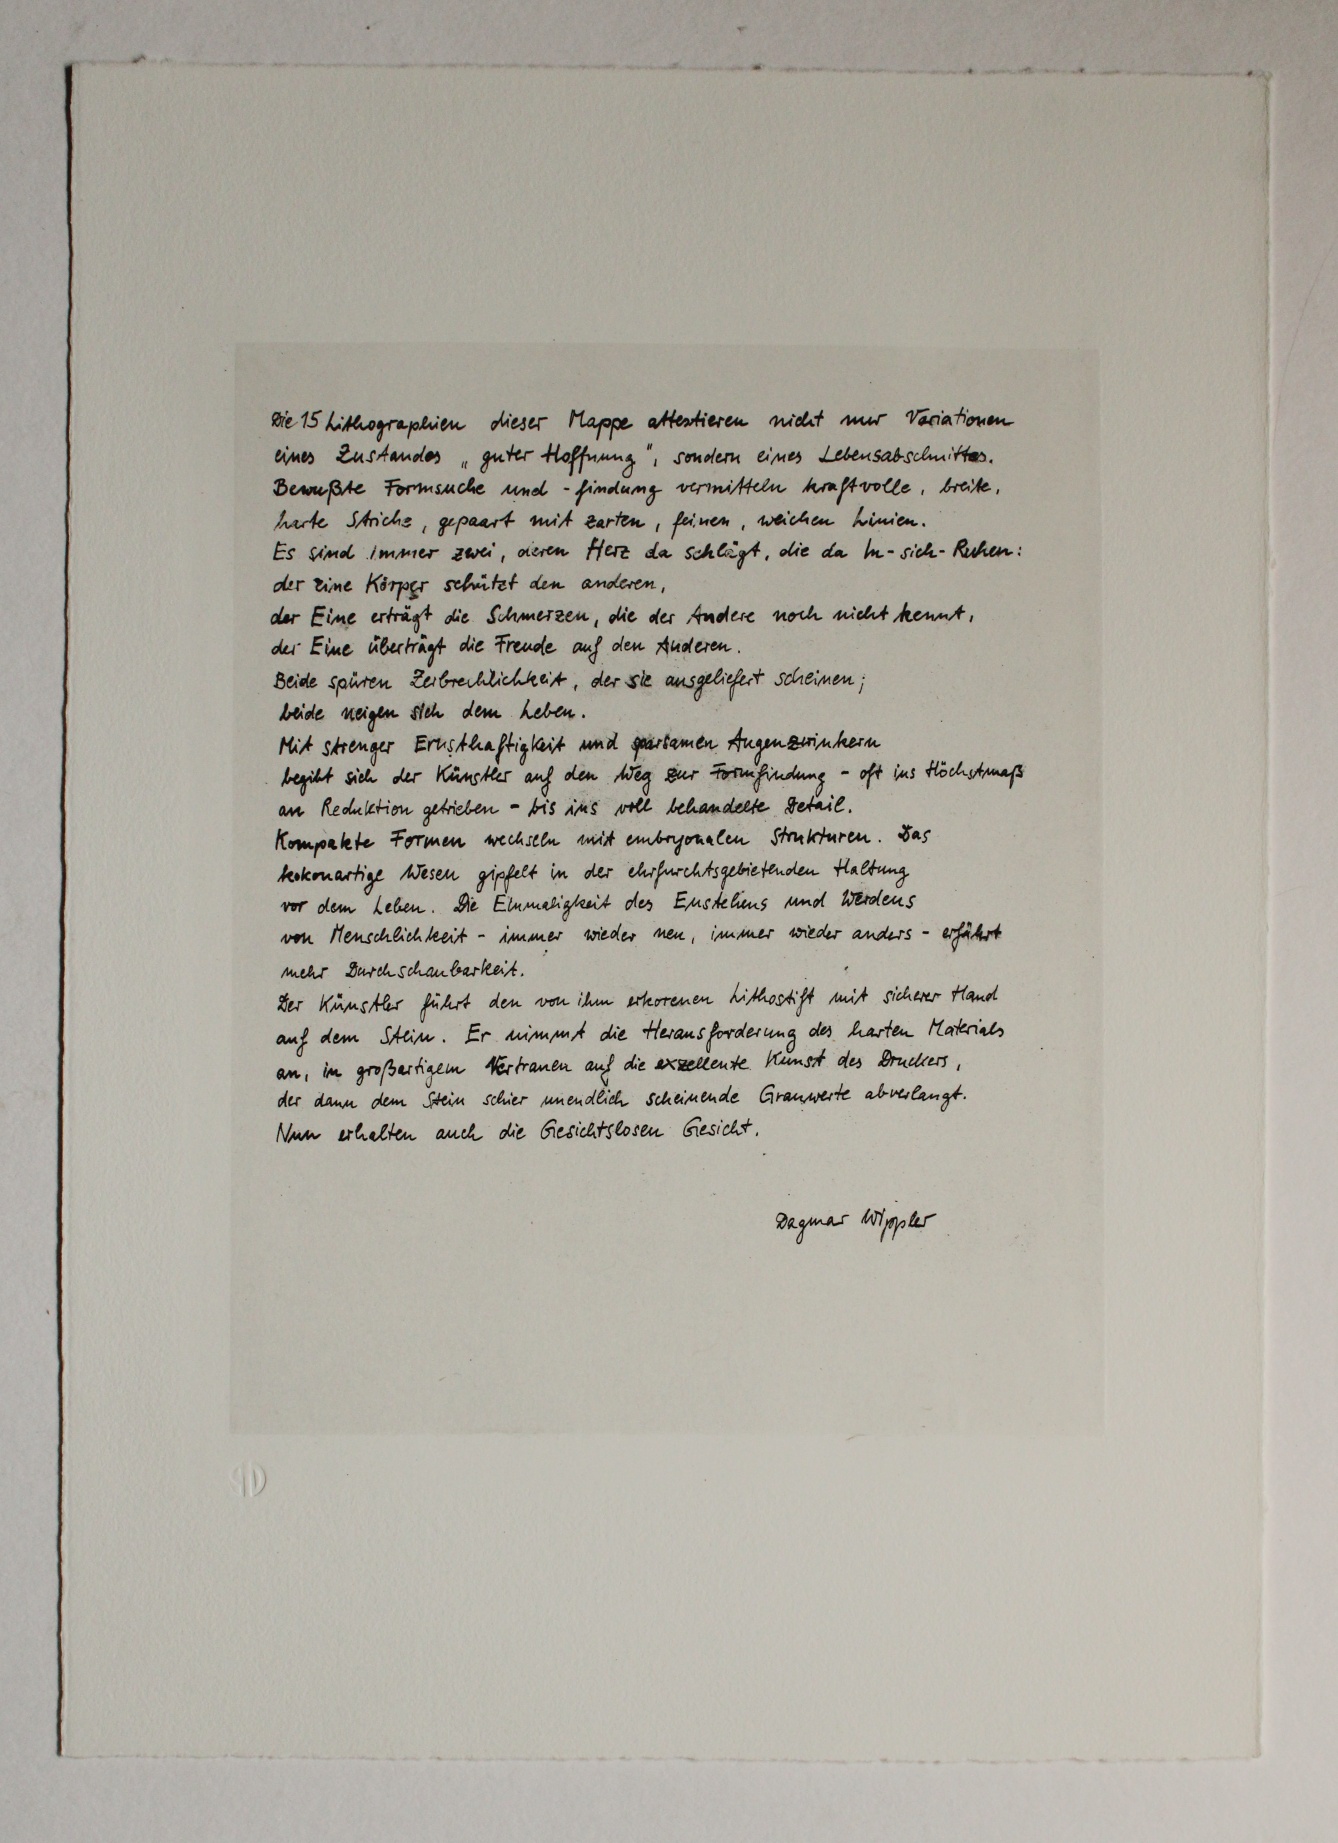 Die 15 Lithographien dieser Mappe attestieren nicht nur Variationen
eines Zustandes „guter Hoffnung", sondern eines Lebensabschnittes.
Bewußte Formsuche und -findung vermitteln kraftvolle, breite,
harte Striche, gepaart mit zarten, feinen, weichen Linien.
Es sind immer zwei, deren Herz da schlägt, die da In-sich-Ruhen:
der eine Körper schützt den anderen,
der Eine erträgt die Schmerzen, die der Andere noch nicht kennt,
der Eine überträgt die Freude auf den Anderen.
Beide spüren Zerbrechlichkeit, der sie ausgeliefert scheinen;
beide neigen sich dem Leben.
Mit strenger Ernsthaftigkeit und sparsamen Augenzwinkern
begibt sich der Künstler auf den Weg zur Formfindung - oft ins Höchstmaß
an Reduktion getrieben - bis ins voll behandelte Detail.
Kompakte Formen wechseln mit embryonalen Strukturen. Das
kokonartige Wesen gipfelt in der ehrfurchtsgebietenden Haltung
vor dem Leben. Die Einmaligkeit des Enstehens und Werdens
von Menschlichkeit - immer wieder neu, immer wieder anders - erfährt
mehr Durchschaubarkeit.
Der Künstler führt den von ihm erkorenen Lithostift mit sicherer Hand
auf dem Stein. Er nimmt die Herausforderung des harten Materials
an, in großartigem Vertrauen auf die exzellente Kunst des Druckers,
der dann dem Stein schier unendlich scheinende Grauwerte abverlangt.
Nun erhalten auch die Gesichtslosen Gesicht.
Dagmar Wippler